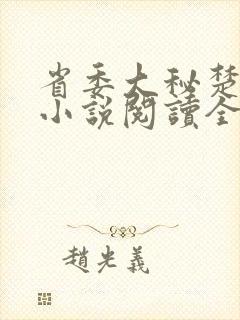 省委大秘楚
小說閱讀全
趙光義